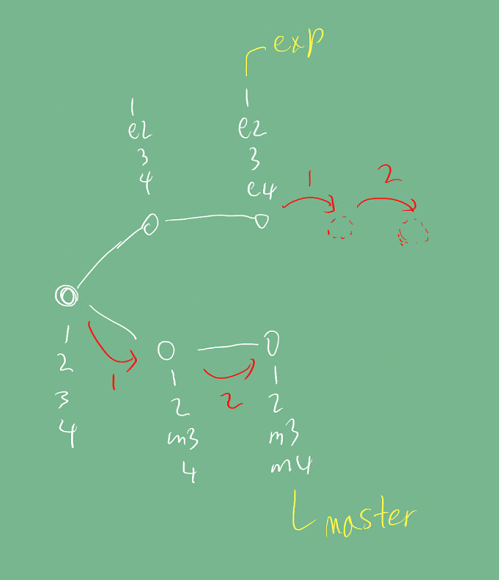 exp
1
e2
3
4
1
e2
3
e4
1
2
1
2
3
4
1
1
2
m3
4
2
1
2
m3
m4
master